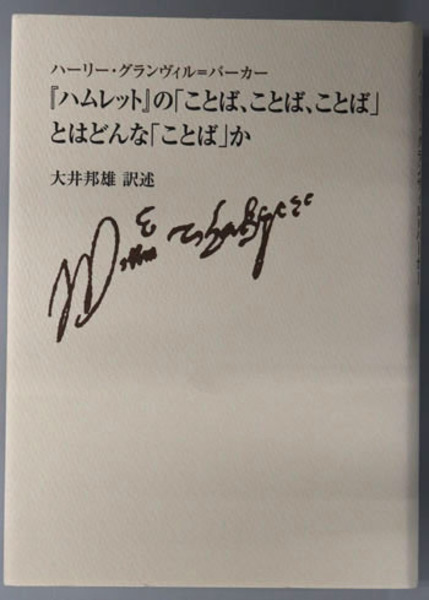 ハーリー・グランヴィル=バーカー
『ハムレット』の「ことば、ことば、ことば」
とはどんな「ことば」か
大井邦雄 訳述